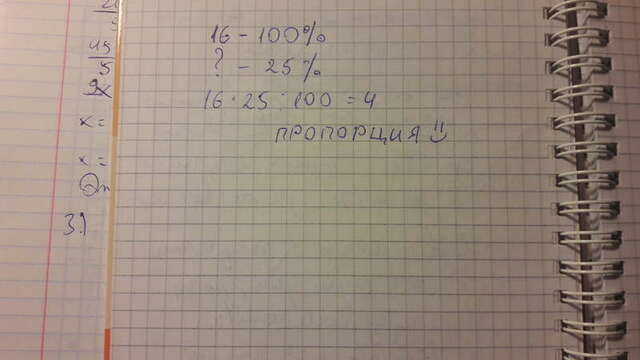 16 - 100%
? - 25%
16 · 25 : 100 = 4
ПРОПОРЦИЯ
45
5
x =
x =
3)